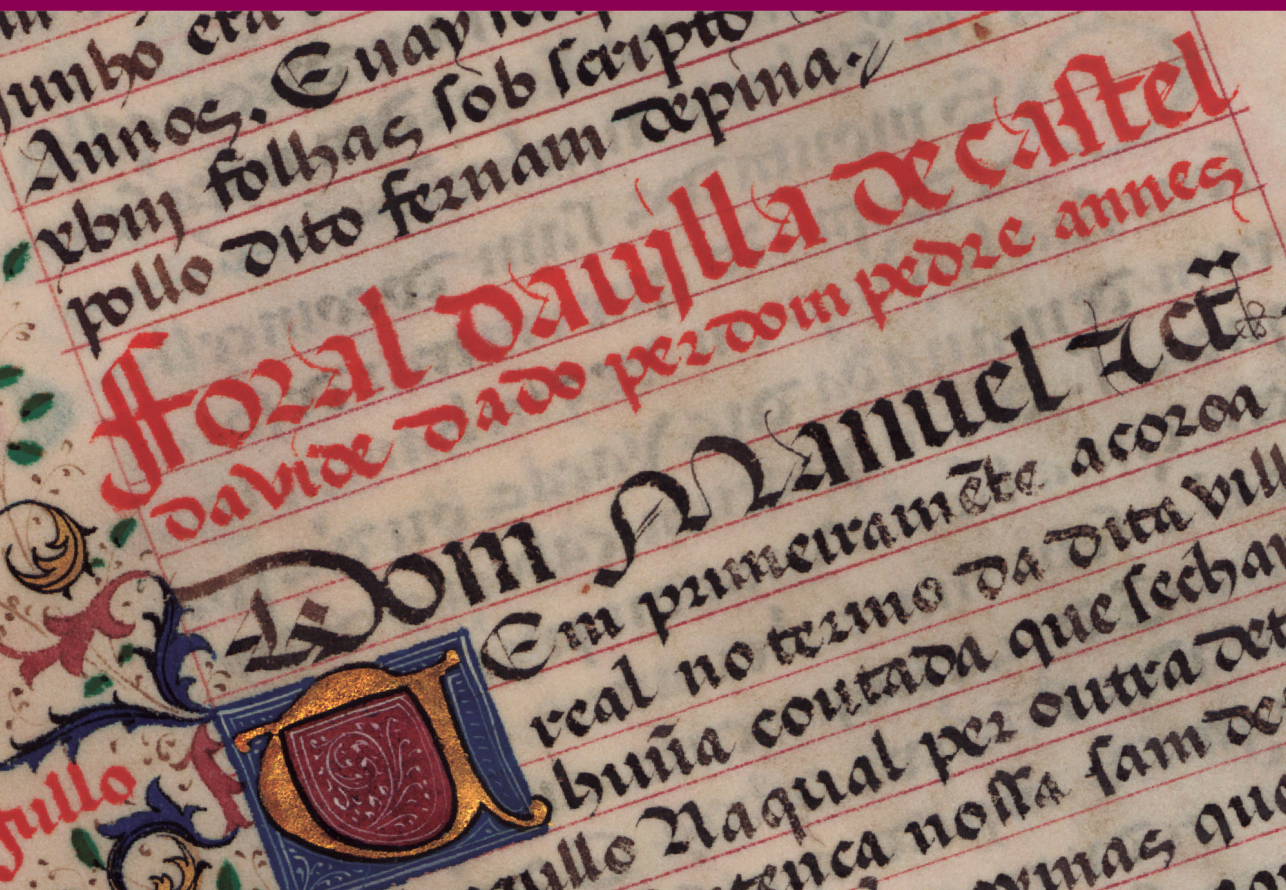 junho era
Annos. E vay
xbiij folhas sob scripto
pollo dito fernam depina.//
fforal davijlla de castel
davide dado per dom pedre annes
Dom Manuel
Em primeiramẽte acoroa
real no termo da dita vill
huũa coutada que sechan
gullo Naqual per outra det
tença nossa sam de
gullo